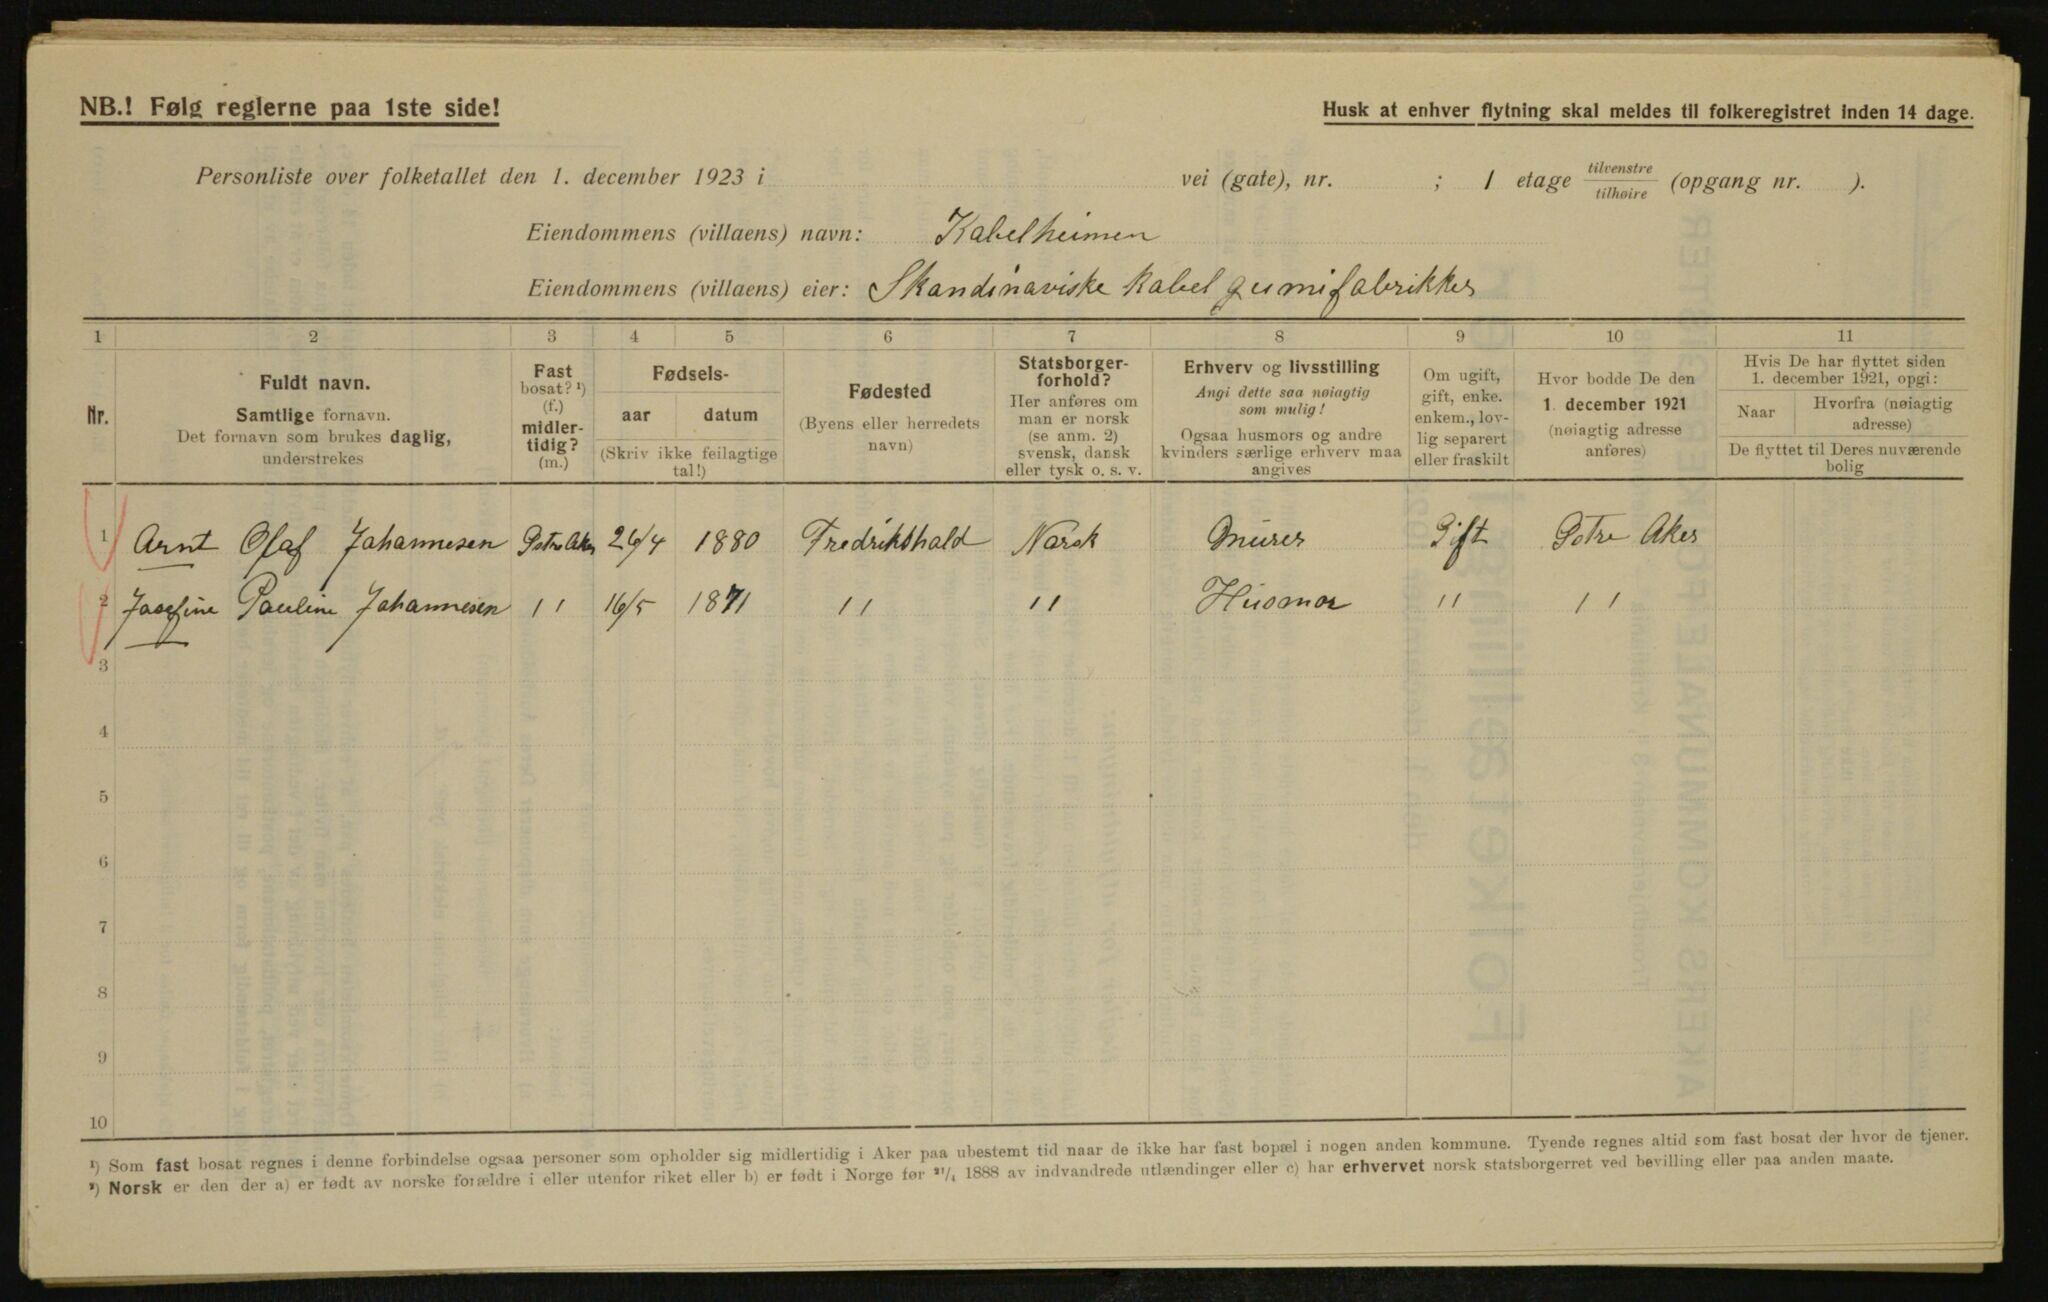 NB.! Følg reglerne paa 1ste side!
Husk at enhver flytning skal meldes til folkeregistret inden 14 dage.
Personliste over folketallet den 1. december 1923 i vei (gate), nr. ; 1 etage tilvenstre tilhøire (opgang nr. ).
Eiendommens (villaens) navn: Kabelheimen
Eiendommens (villaens) eier: Skandinaviske Kabel gumifabrikker
1 2 3 4 5 6 7 8 9 10 11
Nr.
Fuldt navn.
Samtlige fornavn.
Det fornavn som brukes daglig,
understrekes
Fast
bosat? ¹)
(f.)
midler-
tidig?
(m.)
Fødsels-
aar datum
(Skriv ikke feilagtige
tal!)
Fødested
(Byens eller herredets
navn)
Statsborger-
forhold?
Her anføres om
man er norsk
(se anm. 2)
svensk, dansk
eller tysk o. s. v.
Erhverv og livsstilling
Angi dette saa nøiagtig
som mulig!
Ogsaa husmors og andre
kvinders særlige erhverv maa
angives
Om ugift,
gift, enke.
enkem., lov-
lig separert
eller fraskilt
Hvor bodde De den
1. december 1921
(nøiagtig adresse
anføres)
Hvis De har flyttet siden
1. december 1921, opgi:
Naar
Hvorfra (nøiagtig
adresse)
De flyttet til Deres nuværende
bolig
1 Arnt Olaf Johannesen Østre Aker 26/4 1880 Fredrikshald Norsk Murer Gift Østre Aker
2 Josefine Pauline Johannesen " 16/5 1871 " " Husmor " "
3
4
5
6
7
8
9
10
¹) Som fast bosat regnes i denne forbindelse ogsaa personer som opholder sig midlertidig i Aker paa ubestemt tid naar de ikke har fast bopæl i nogen anden kommune. Tyende regnes altid som fast bosat der hvor de tjener.
²) Norsk er den der a) er født av norske forældre i eller utenfor riket eller b) er født i Norge før ²¹/₄ 1888 av indvandrede utlændinger eller c) har erhvervet norsk statsborgerret ved bevilling eller paa anden maate.